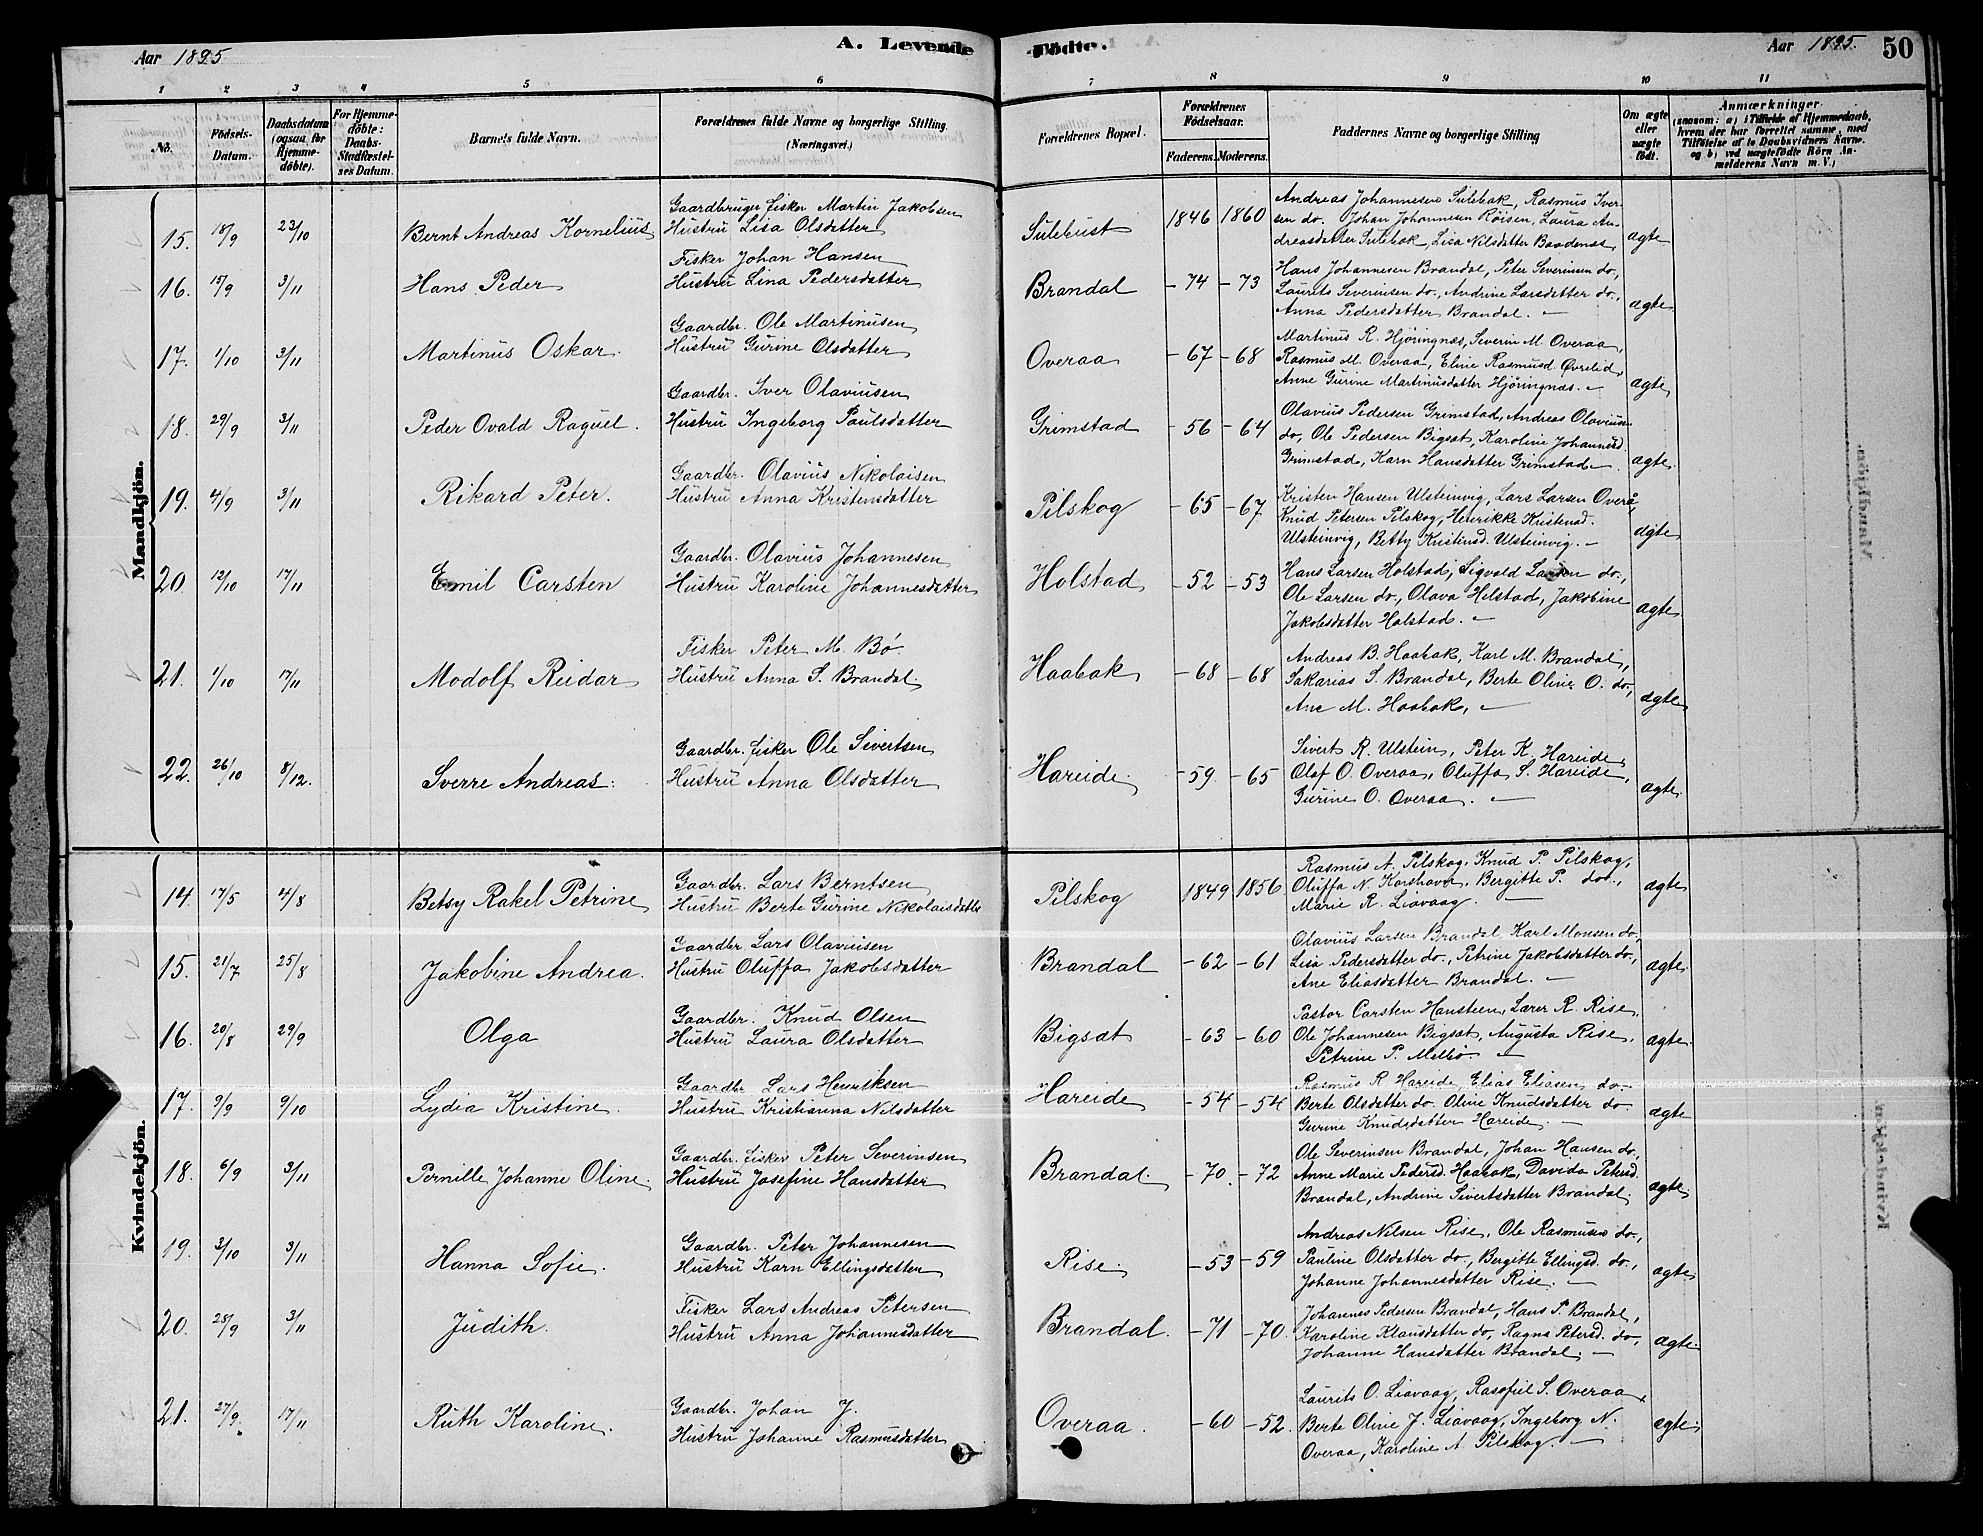 Aar 1895 A. Levende Födte. Aar 1895. 50
1 2 3 4 5 6 7 8 9 10 11
No. Födsels-Datum. Daabsdatum (ogsaa for Hjemmedöbte). For Hjemmedöbte: Daabs-Stadfæstelses Datum. Barnets fulde Navn. Forældrenes fulde Navne og borgerlige Stilling. (Næringsvei.) Forældrenes Bopæl. Forældrenes Födselsaar. Faderens. Moderens. Faddernes Navne og borgerlige Stilling Om ægte eller uægte födt. Anmærkninger. (saasom: a) i Tilfælde af Hjemmedaab, hvem der har forrettet samme, med Tilföielse af to Daabsvidners Navne. og b) ved uægtefödte Börn Anmelderens Navn m. V.)
Mandkjön.
Gaardbruger Fisker Martin Jakobsen Andreas Johannesen Sulebak, Rasmus Iver-
15. 18/9 23/10 Bernt Andreas Kornelius Hustru Lisa Olsdatter Sulebust 1846 1860 sen do. Johan Johannesen Röisen, Laura An-
dreasdatter Sulebak, Lisa Nilsdatter agte
Fisker Johan Hansen Hans Johannesen Brandal, Peter Severinsen do.,
16. 15/9 3/11 Hans Peder Hustru Lina Pedersdatter Brandal -74 -73 Laurits Severinsen do., Andrine Larsdatter do.,
Anna Pedersdatter Brandal. — agte
Gaardbr. Ole Martinusen Martinus R. Hjöringnæs, Severin M. Overaa,
17. 1/10 3/11 Martinus Oskar. Hustru Gurine Olsdatter Overaa -67 -68 Rasmus M. Overaa, Eline Rasmusd. Øvrelid,
Anne Gurine Martinusdatter Hjöringnæs. — agte
Gaardbr. Iver Olaviusen Olavius Pedersen Grimstad, Andreas Olaviusen
18. 29/9 3/11 Peder Ovald Raguel. Hustru Ingeborg Paulsdatter Grimstad -56 -64 do, Ole Pedersen Bigsat, Karoline Johannesd
Grimstad, Karn Hansdatter Grimstad —. agte.
Gaardbr. Olavius Nikolaisen Kristen Hansen Ulsteinvig, Lars Larsen Overå
19. 4/9 3/11 Rikard Peter. Hustru Anna Kristensdatter Pilskog -65 -67 Knud Petersen Pilskog, Henrikke Kristensd.
Ulsteinvig, Betty Kristensd. Ulsteinvig. — agte
Gaardbr. Olavius Johannesen Hans Larsen Holstad, Sigvald Larsen do.,
20. 12/10 17/11 Emil Carsten Hustru Karoline Johannesdatter Holstad -52 -53 Ole Larsen do., Olava Helstad, Jakobine
Jakobsdatter Holstad. — agte
Fisker Peter M. Bö. Andreas B. Haabak, Karl M. Brandal,
21. 1/10 17/11 Modolf Reidar Hustru Anna S. Brandal. Haabak -68 -68 Sakarias S. Brandal, Berte Oline O. do.,
Ane M. Haabak, — agte
Gaardbr. Fisker Ole Sivertsen Sivert R. Ulstein, Peter K. Hareide,
22. 26/10 8/12. Sverre Andreas. Hustru Anna Olsdatter Hareide. -59. -65 Olaf O. Overaa, Oluffa S. Hareide,
Gurine O. Overaa. — agte.
Kvindekjön.
Gaardbr. Lars Berntsen Rasmus A. Pilskog, Knud P. Pilskog,
14. 17/5 4/8 Betsy Rakel Petrine Hustru Berte Gurine Nikolaisdatter Pilskog 1849 1856 Oluffa N. Korshavn, Bergitte P. do.,
Marie R. Liavaag. — agte
Gaardbr. Lars Olaviusen Olavius Larsen Brandal, Karl Monsen do.,
15. 21/7 25/8 Jakobine Andrea. Hustru Oluffa Jakobsdatter Brandal -62 -61 Lisa Pedersdatter do., Petrine Jakobsdatter do.,
Ane Eliasdatter Brandal. — agte.
Gaardbr. Knud Olsen Pastor Carsten Hansteen, Lærer R. Rise,
16. 20/8 29/9 Olga Hustru Laura Olsdatter Bigsat -63 -60 Ole Johannesen Bigsat, Augusta Rise,
Petrine P. Melbö — agte.
Gaardbr. Lars Henriksen Rasmus R. Hareide, Elias Eliasen do.
17. 9/9 9/10 Lydia Kristine. Hustru Kristianna Nilsdatter Hareide -54 -54 Berte Olsdatter do. Oline Knudsdatter do.
Gurine Knudsdatter Hareide. — agte
Gaardbr. Fisker Peter Severinsen Ole Severinsen Brandal, Johan Hansen do.,
18. 6/9 3/11 Pernille Johanne Oline. Hustru Josefine Hansdatter Brandal. -70. -72 Anne Marie Pedersd. Haabak, Davida Petersd.
Brandal, Andrine Sivertsdatter Brandal. agte.
Gaardbr. Peter Johannesen Andreas Nilsen Rise, Ole Rasmusen do.,
19. 3/10 3/11 Hanna Sofie. Hustru Karn Ellingsdatter Rise. -53 -59 Pauline Olsdatter do., Bergitte Ellingsd. do.,
Johanne Johannesdatter Rise. — agte
Fisker Lars Andreas Petersen Johannes Pedersen Brandal, Hans P. Brandal,
20. 28/9 3/11 Judith. Hustru Anna Johannesdatter Brandal. -71 -70. Karoline Klausdatter do, Ragna Petersd. do,
Johanne Hansdatter Brandal. — agte.
Gaardbr. Johan J. Laurits O. Liavaag, Rasofiel S. Overaa,
21. 27/9. 17/11 Ruth Karoline. Hustru Johanne Rasmusdatter Overaa. -60 -52. Berte Oline J. Liavaag, Ingeborg N.
Overaa, Karoline A. Pilskog. — egte.